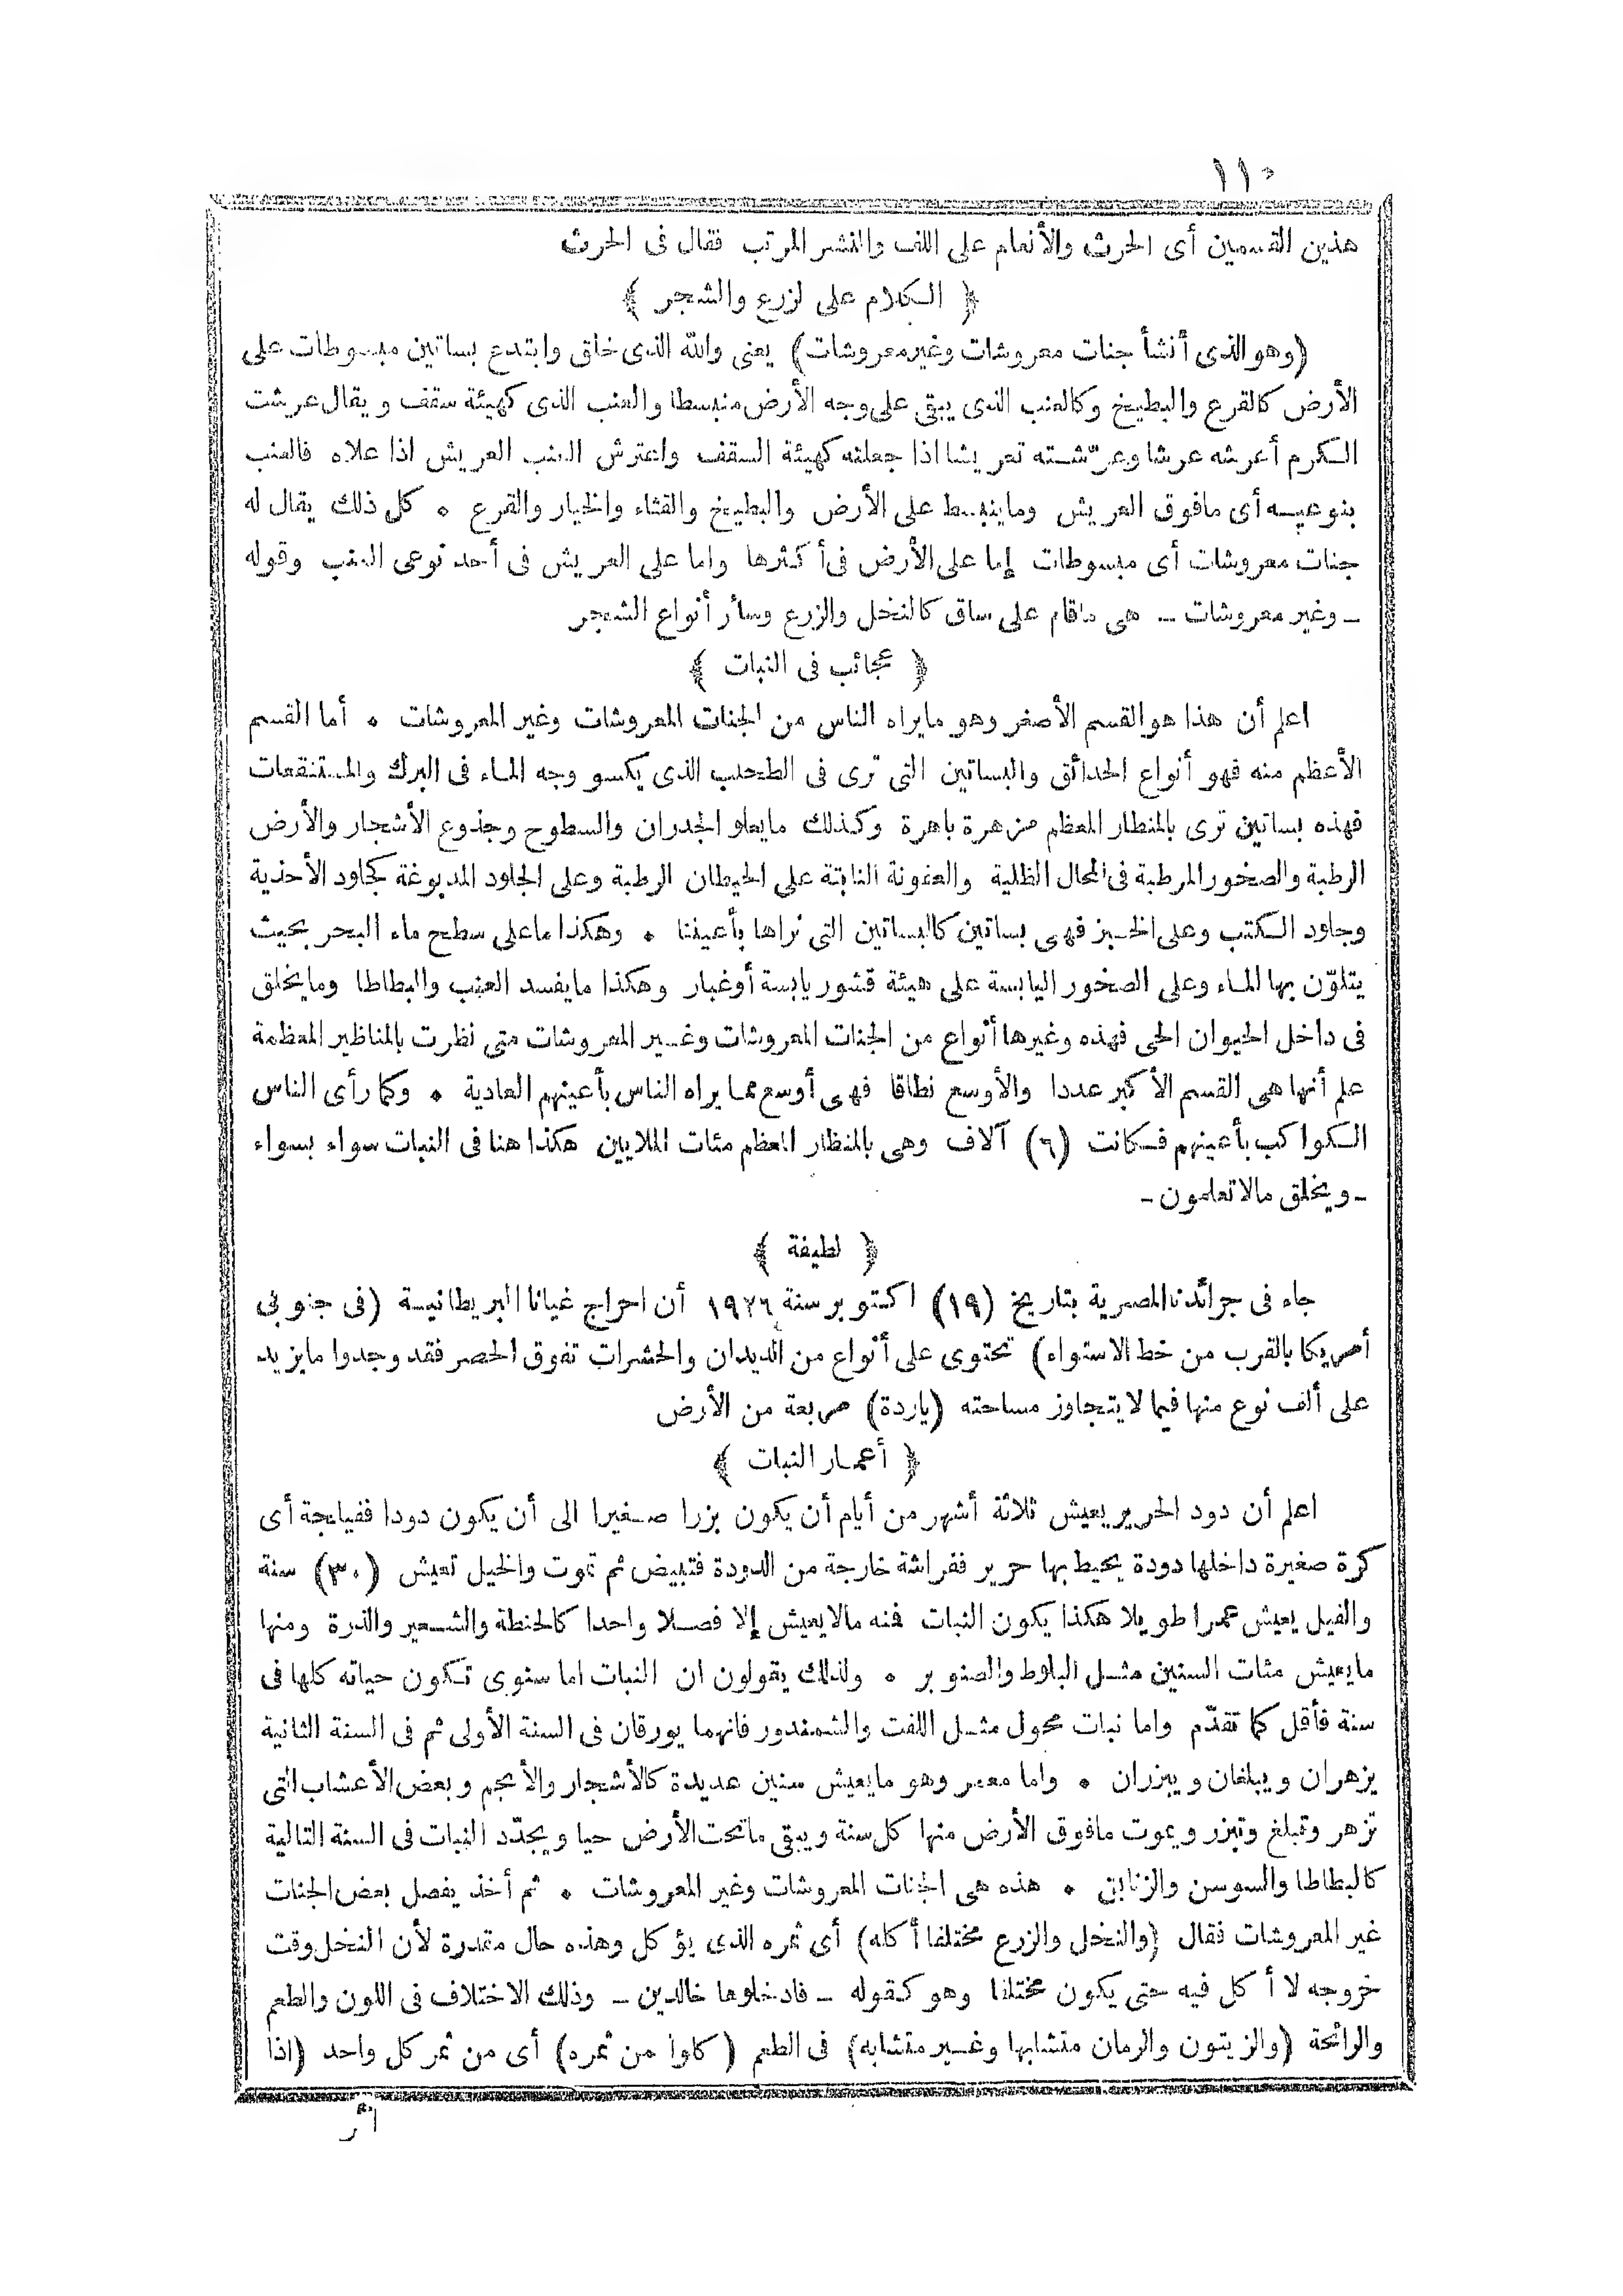 ١١٠
هذين القسمين أى الحرث والأنعام على اللف والنشر المرتب فقال فى الحرث
﴿ الكلام على لزرع والشجر ﴾
(وهو الذى أنشأ جنات معروشات وغير معروشات) يعنى والله الذى خلق وابتدع بساتين مبسوطات على
الأرض كالقرع والبطيخ وكالعنب الذى يبقى على وجه الأرض منبسطا والعنب الذى كهيئة سقف ويقال عرشت
الكرم أعرشه عرشا وعرّشته تعريشا اذا جعلته كهيئة السقف واعترش العنب العريش اذا علاه فالعنب
بنوعيه أى مافوق العريش وماينبسط على الأرض والبطيخ والقثاء والخيار والقرع * كل ذلك يقال له
جنات معروشات أى مبسوطات إما على الأرض فى أكثرها واما على العريش فى أحد نوعى العنب وقوله
_ وغير معروشات _ هى ماقام على ساق كالنخل والزرع وسائر أنواع الشجر
﴿ عجائب فى النبات ﴾
اعلم أن هذا هو القسم الأصغر وهو مايراه الناس من الجنات المعروشات وغير المعروشات * أما القسم
الأعظم منه فهو أنواع الحدائق والبساتين التى ترى فى الطحلب الذى يكسو وجه الماء فى البرك والمستنقعات
فهذه بساتين ترى بالمنظار المعظم مزهرة باهرة وكذلك مايعلو الجدران والسطوح وجذوع الأشجار والأرض
الرطبة والصخور المرطبة فى المحال الظلية والعفونة النابتة على الحيطان الرطبة وعلى الجلود المدبوغة كجلود الأحذية
وجلود الكتب وعلى الخبز فهى بساتين كالبساتين التى نراها بأعيننا * وهكذا ماعلى سطح ماء البحر بحيث
يتلوّن بها الماء وعلى الصخور اليابسة على هيئة قشور يابسة أوغبار وهكذا مايفسد العنب والبطاطا ومايخلق
فى داخل الحيوان الحى فهذه وغيرها أنواع من الجنات المعروشات وغير المعروشات متى نظرت بالمناظير المعظمة
علم أنها هى القسم الأكبر عددا والأوسع نطاقا فهى أوسع مما يراه الناس بأعينهم العادية * وكما رأى الناس
الكواكب بأعينهم فكانت (٦) آلاف وهى بالمنظار المعظم مئات الملايين هكذا هنا فى النبات سواء بسواء
_ ويخلق مالاتعلمون _
﴿ لطيفة ﴾
جاء فى جرائدنا المصرية بتاريخ (١٩) اكتوبر سنة ١٩٢٦ أن احراج غيانا البريطانية (فى جنوبى
أمريكا بالقرب من خط الاستواء) تحتوى على أنواع من الديدان والحشرات تفوق الحصر فقد وجدوا مايزيد
على ألف نوع منها فيما لايتجاوز مساحته (ياردة) مربعة من الأرض
﴿ أعمار النبات ﴾
اعلم أن دود الحرير يعيش ثلاثة أشهر من أيام أن يكون بزرا صغيرا الى أن يكون دودا ففيلجة أى
كرة صغيرة داخلها دودة يحيط بها حرير ففراشة خارجة من الدودة فتبيض ثم تموت والخيل تعيش (٣٠) سنة
والفيل يعيش عمرا طويلا هكذا يكون النبات فمنه مالايعيش إلا فصلا واحدا كالحنطة والشعير والذرة ومنها
مايعيش مئات السنين مثل البلوط والصنوبر * ولذلك يقولون ان النبات اما سنوى تكون حياته كلها فى
سنة فأقل كما تقدّم واما نبات محول مثل اللفت والشمندور فانهما يورقان فى السنة الأولى ثم فى السنة الثانية
يزهران ويبلغان ويبزران * واما معمر وهو مايعيش سنين عديدة كالأشجار والأنجم وبعض الأعشاب التى
تزهر وتبلغ وتبزر ويموت مافوق الأرض منها كل سنة ويبقى ماتحت الأرض حيا ويجدّد النبات فى السنة التالية
كالبطاطا والسوسن والزنابق * هذه هى الجنات المعروشات وغير المعروشات * ثم أخذ يفصل بعض الجنات
غير المعروشات فقال (والنخل والزرع مختلفا أكله) أى ثمره الذى يؤكل وهذه حال مقدرة لأن النخل وقت
خروجه لا أكل فيه حتى يكون مختلفا وهو كقوله _ فادخلوها خالدين _ وذلك الاختلاف فى اللون والطعم
والرائحة (والزيتون والرمان متشابها وغير متشابه) فى الطعم (كلوا من ثمره) أى من ثمر كل واحد (اذا
اثمر